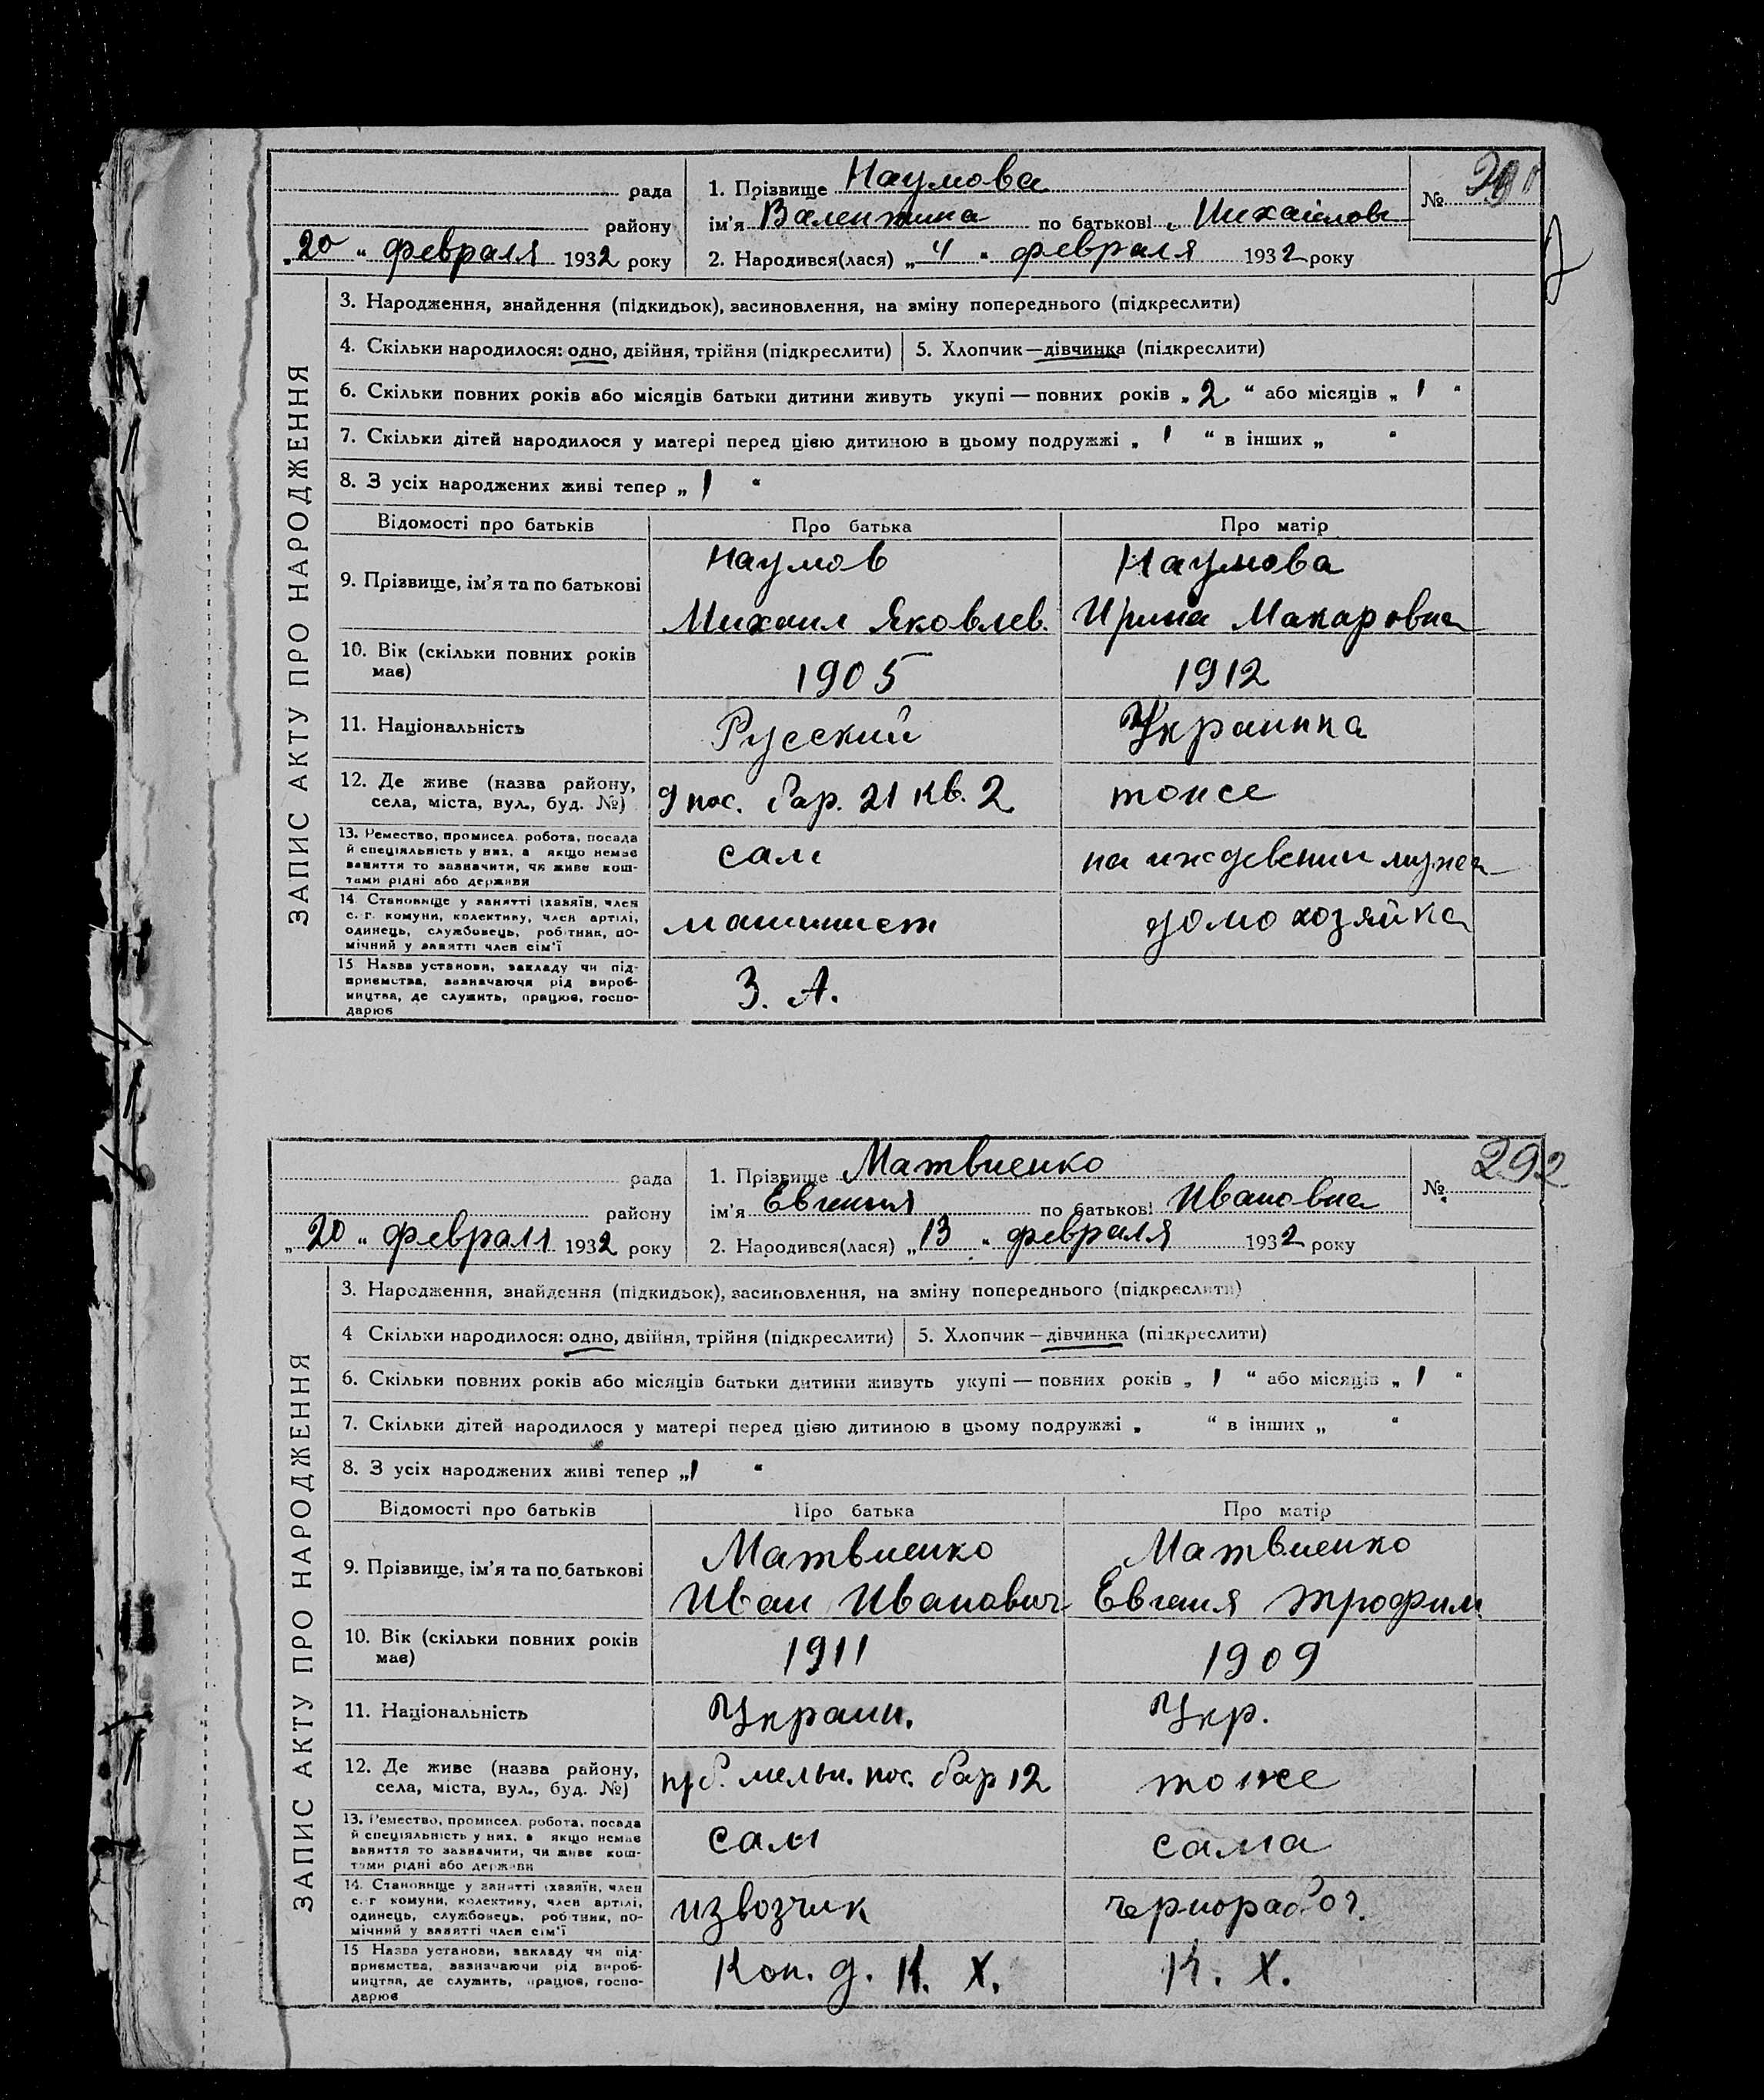 рада
району
„20“ февраля 1932 року
1. Прізвище Наумова
ім’я Валентина по батькові Михайлов
2. Народився(лася) „4“ февраля 1932 року
№
ЗАПИС АКТУ ПРО НАРОДЖЕННЯ
3. Народження, знайдення (підкидьок), засиновлення, на зміну попереднього (підкреслити)
4. Скільки народилося: одно, двійня, трійня (підкреслити) 5. Хлопчик—дівчинка (підкреслити)
6. Скільки повних років або місяців батьки дитини живуть укупі — повних років „2“ або місяців „1“
7. Скільки дітей народилося у матері перед цією дитиною в цьому подружжі „1“ в інших „ “
8. З усіх народжених живі тепер „1“
Відомості про батьків Про батька Про матір
9. Прізвище, ім’я та по батькові
Наумов
Михаил Яковлев.
Наумова
Ирина Макаровна
10. Вік (скільки повних років
має)
1905
1912
11. Національність Русский Украинка
12. Де живе (назва району,
села, міста, вул., буд. №)
9 пос. бар. 21 кв. 2
тоже
13. Ремество, промисел. робота, посада
й спеціяльність у них, а якщо немає
заняття то зазначити, чи живе кош-
тами рідні або держави
сам
на иждевении мужа
14 Становище у занятті (хазяїн, член
с. г. комуни, колективу, член артілі,
одинець, службовець, робітник, по-
мічний у занятті член сім’ї
машинист
домохозяйка
15 Назва установи, закладу чи під-
приємства, зазначаючи рід вироб-
ництва, де служить, працює, госпо-
дарює
З. А.
рада
району
„20“ февраля 1932 року
1. Прізвище Матвиенко
ім’я Евгения по батькові Ивановна
2. Народився(лася) „13“ февраля 1932 року
№ 292
ЗАПИС АКТУ ПРО НАРОДЖЕННЯ
3. Народження, знайдення (підкидьок), засиновлення, на зміну попереднього (підкреслити)
4 Скільки народилося: одно, двійня, трійня (підкреслити) 5. Хлопчик—дівчинка (підкреслити)
6. Скільки повних років або місяців батьки дитини живуть укупі — повних років „1“ або місяців „1“
7. Скільки дітей народилося у матері перед цією дитиною в цьому подружжі „ “ в інших „ “
8. З усіх народжених живі тепер „1“
Відомості про батьків Про батька Про матір
9. Прізвище, ім’я та по батькові
Матвиенко
Иван Иванович
Матвиенко
Евгения Трофим
10. Вік (скільки повних років
має)
1911
1909
11. Національність Украин. Укр.
12. Де живе (назва району,
села, міста, вул., буд. №)
мельн. пос. бар 12
тоже
13. Ремество, промисел. робота, посада
й спеціяльність у них, а якщо немає
заняття то зазначити, чи живе кош-
тами рідні або держави
сам
сама
14. Становище у занятті (хазяїн, член
с. г комуни, колективу, член артілі,
одинець, службовець, робітник, по-
мічний у занятті член сім’ї
извозчик
чернорабоч.
15 Назва установи, закладу чи під-
приємства, зазначаючи рід вироб-
ництва, де служить, працює, госпо-
дарює
Кон. д. К. Х.
К. Х.